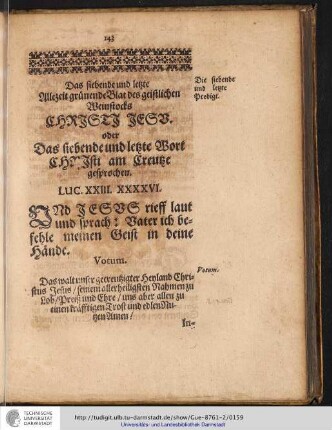 143
Das siebende und letzte
Allezeit grünende Blat des geistlichen
Weinstocks
CHRISTI JESV.
oder
Das siebende und letzte Wort
CHRIsti am Creutze
gesprochen.
LUC. XXIII. XXXXVI.
UNd JESVS rieff laut
und sprach: Vater ich be-
fehle meinen Geist in deine
Hände.
Votum.
Das walt unser gecreutzigter Heyland Chri-
stus Jesus / seinem allerheiligsten Nahmen zu
Lob / Preiß und Ehre / uns aber allen zu
einen kräfftigen Trost und edlen Nu-
tzen Amen /
In-
Die siebende
und letzte
Predigt.
Votum.
TECHNISCHE
UNIVERSITÄT
DARMSTADT
http://tudigit.ulb.tu-darmstadt.de/show/Gue-8761-2/0159
Universitäts- und Landesbibliothek Darmstadt